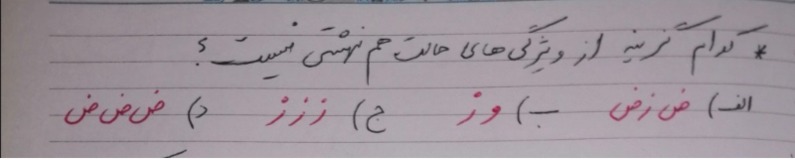 * کدام گزینه از ویژگی‌های حالت هم نهشتی نیست؟
الف) ض ز ض ب) و ز ج) ز ز ز د) ض ض ض